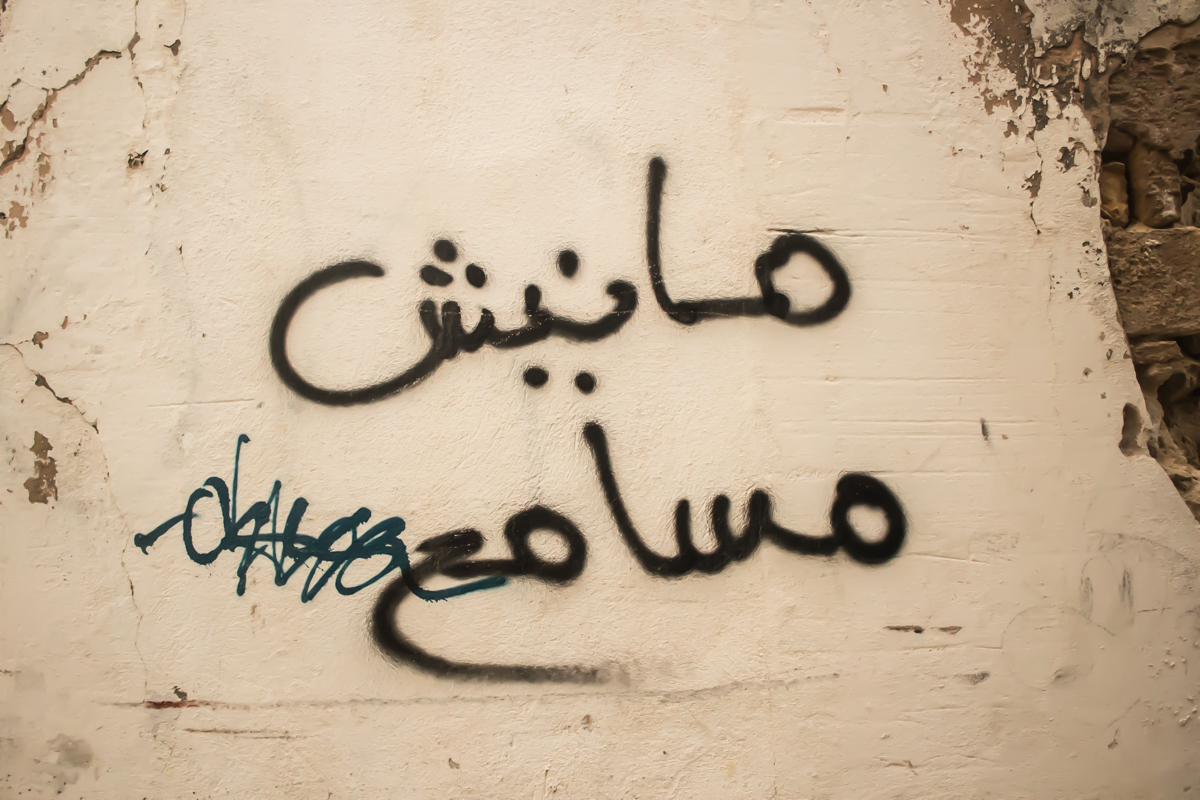 مانيش
مسامح